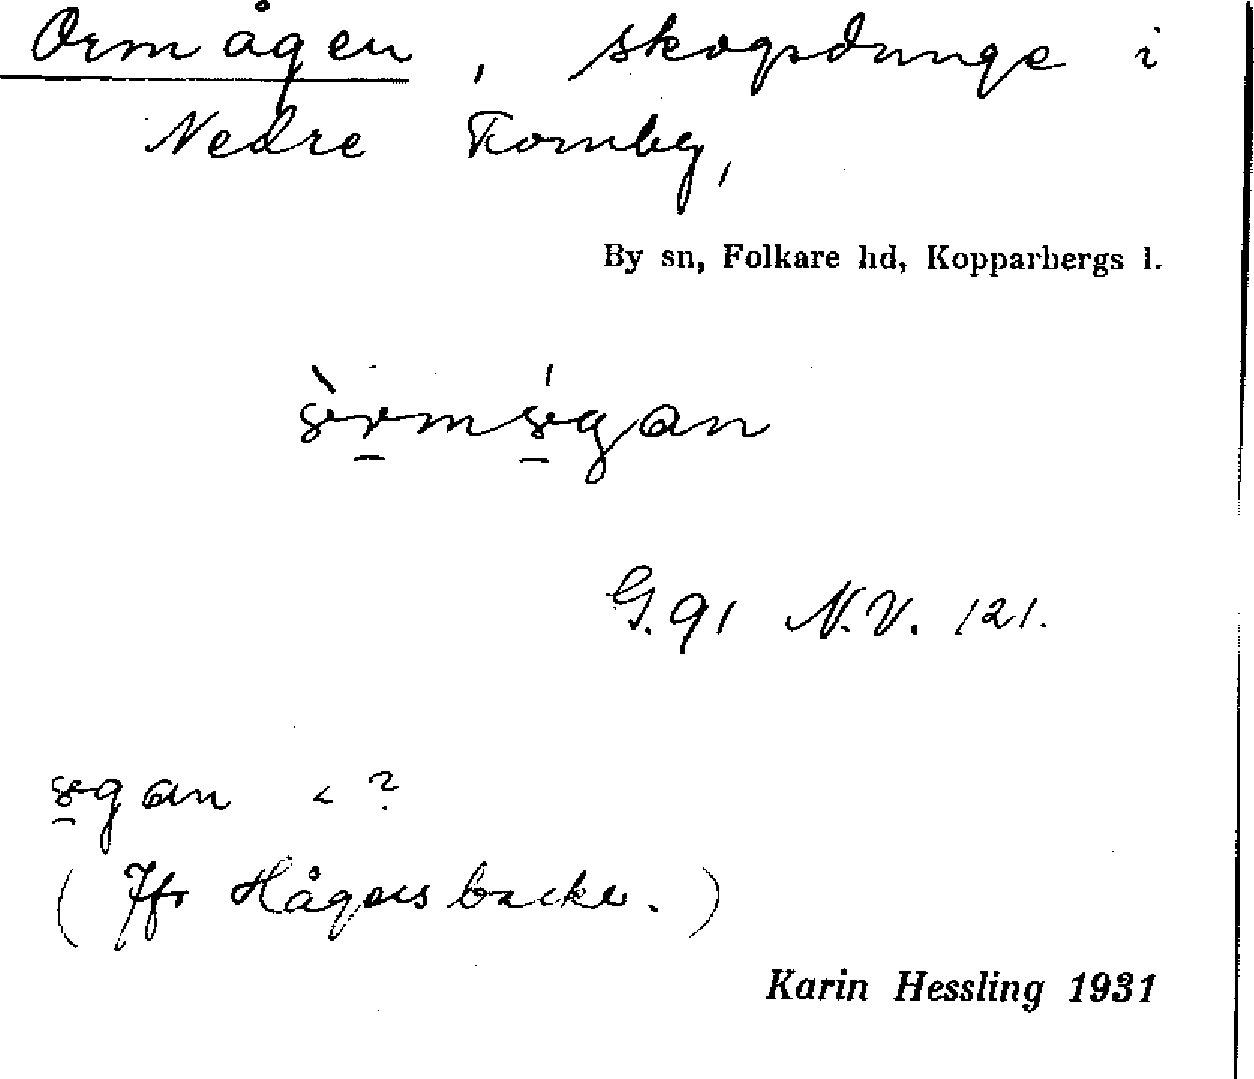 Ormågen, skogsdunge i
Nedre Fornby,
By sn, Folkare hd, Kopparbergs l.
G. 91 N.V. 121.
< ?
(Jfr Hågens backe.)
Karin Hessling 1931